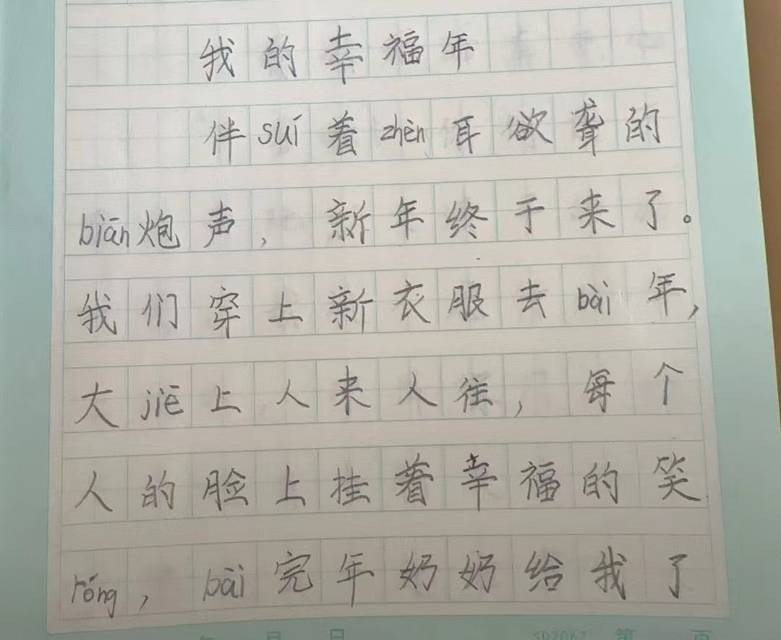 我的幸福年
伴suí着zhèn耳欲聋的
biān炮声，新年终于来了。
我们穿上新衣服去bài年，
大jiē上人来人往，每个
人的脸上挂着幸福的笑
róng，bài完年奶奶给我了
年 月 日 第 页